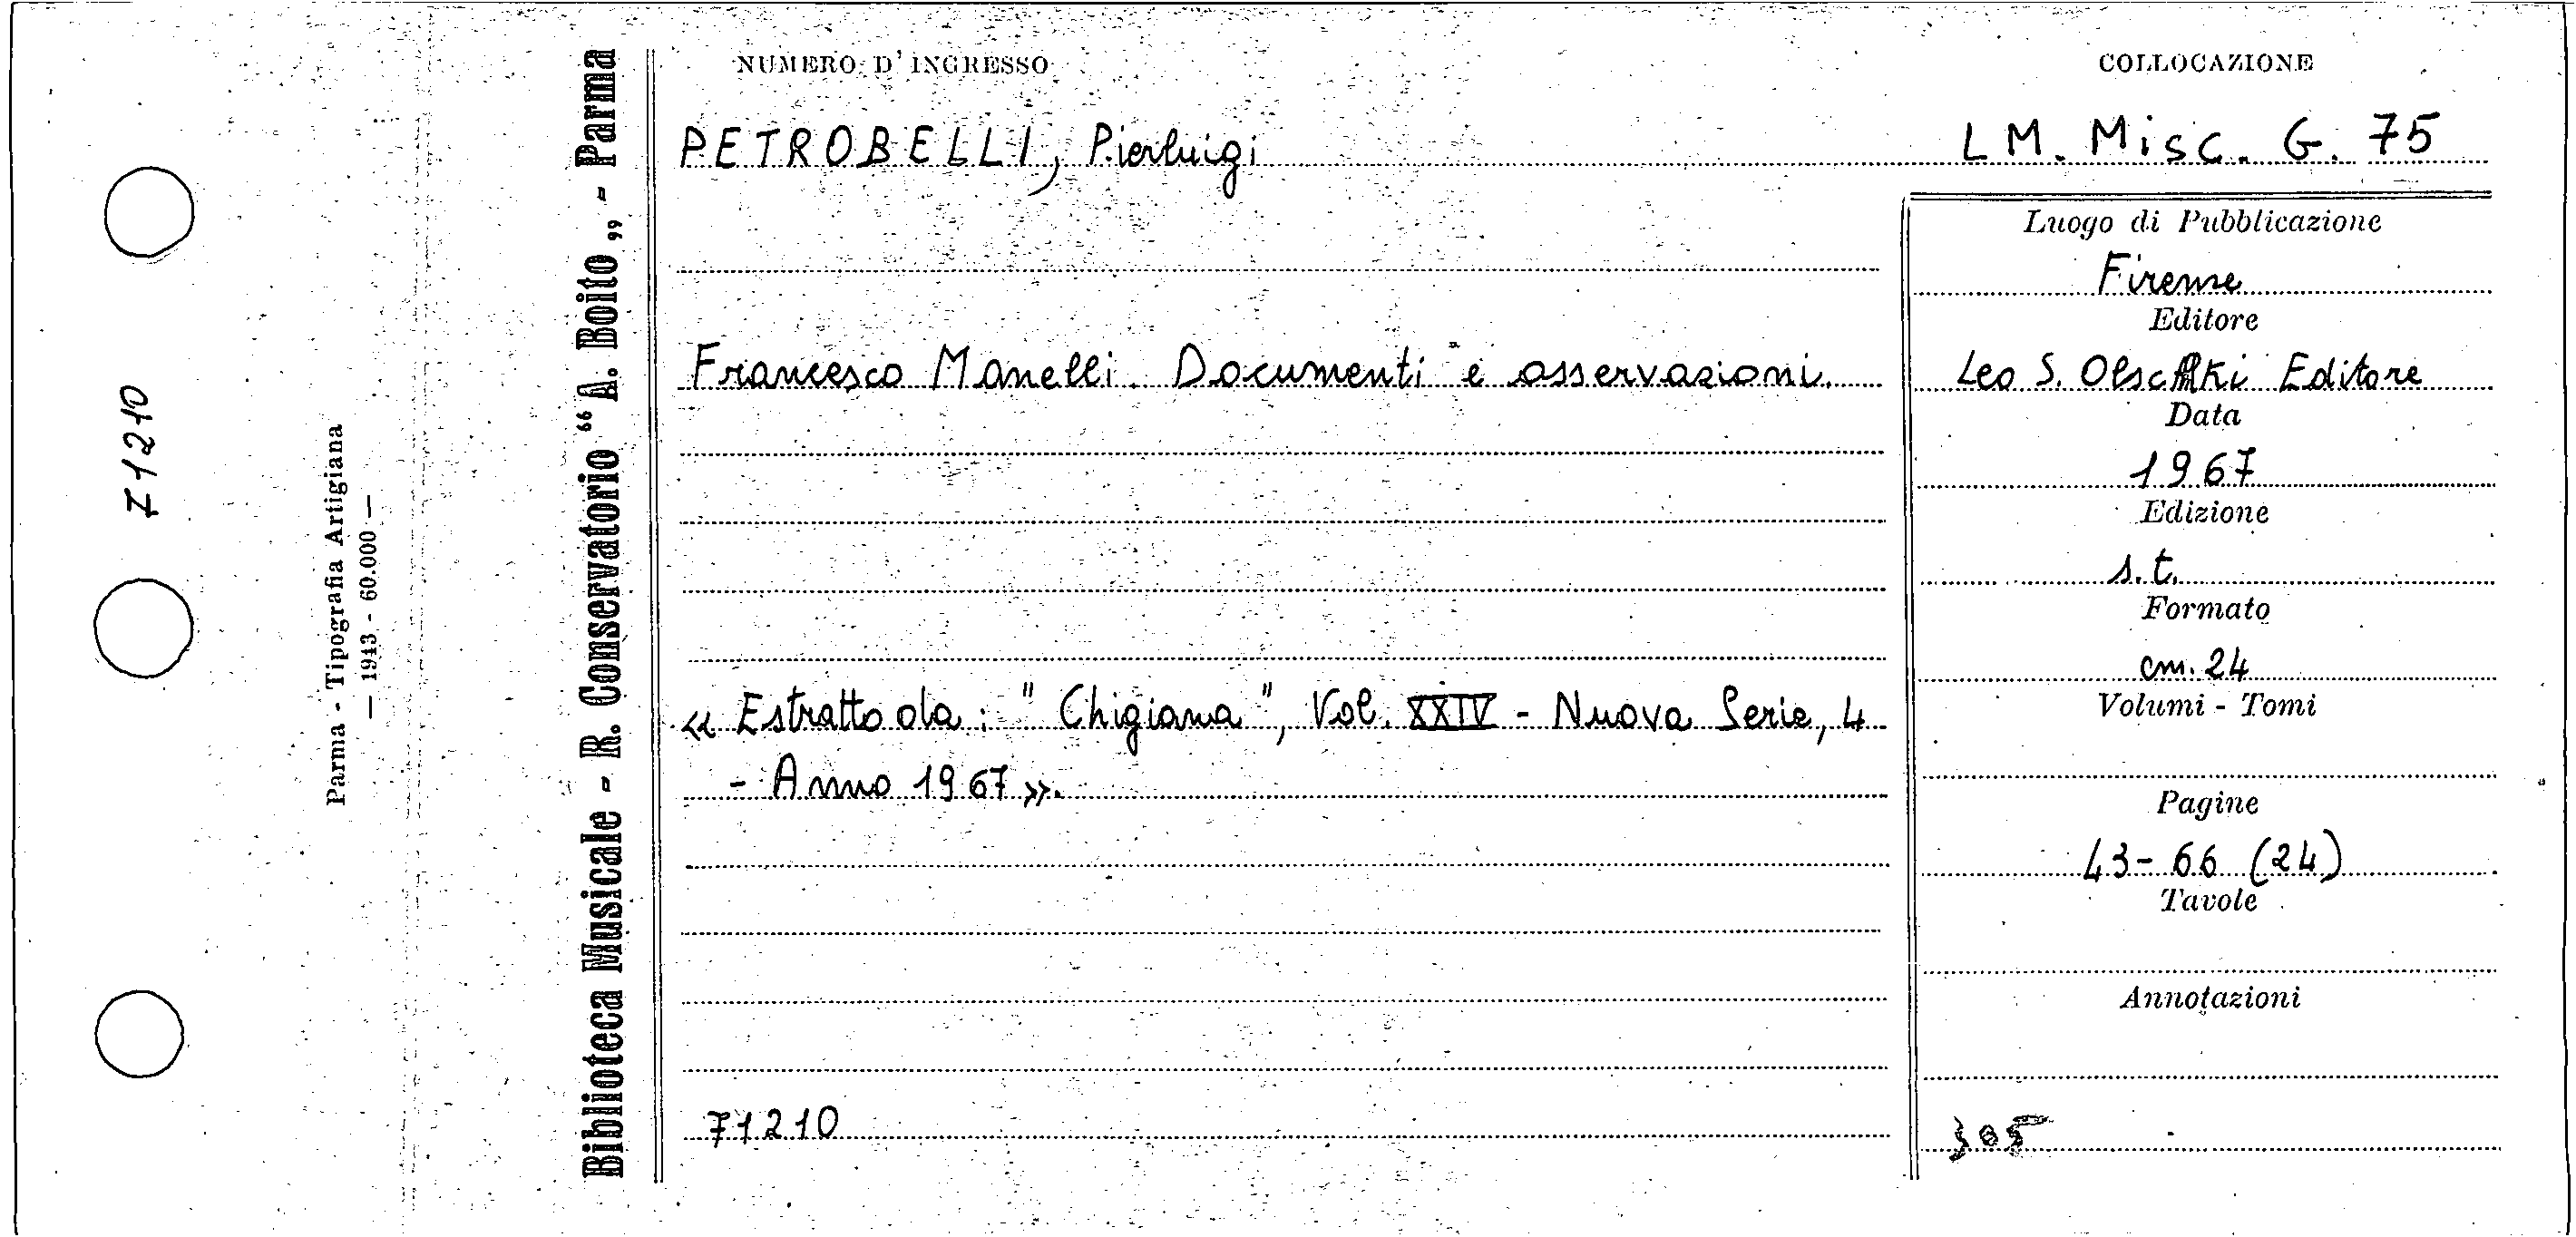 71210
Parma - Tipografia Artigiana
— 1943 - 60.000 —
Biblioteca Musicale - R. Conservatorio “A. Boito„ - Parma
NUMERO D'INGRESSO
COLLOCAZIONE
PETROBELLI, Pierluigi
LM. Misc. G. 75
Francesco Manelli. Documenti e osservazioni.
« Estratto da: "Chigiana", Vol. XXIV - Nuova Serie, 4
- Anno 1967 ».
71210
Luogo di Pubblicazione
Firenze
Editore
Leo S. Olschki Editore
Data
1967
Edizione
s.t.
Formato
cm. 24
Volumi - Tomi
Pagine
43-66 (24)
Tavole
Annotazioni
305